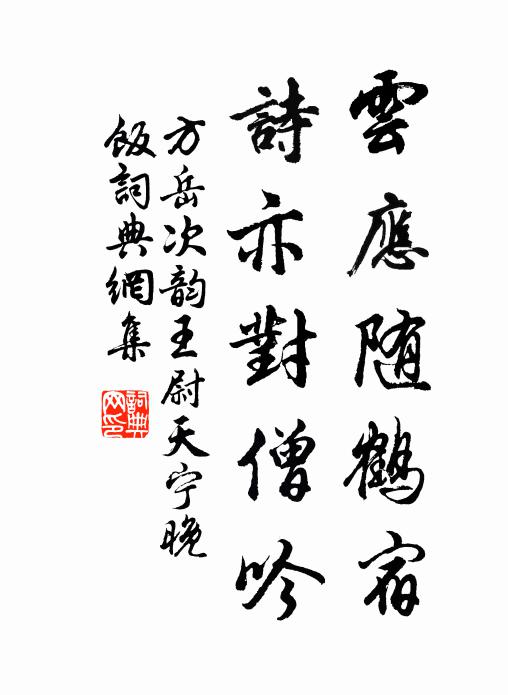 雲應随鶴宿
詩亦對僧吟
方岳次韵王尉天宁晚
飯詞典網集
詞典网印